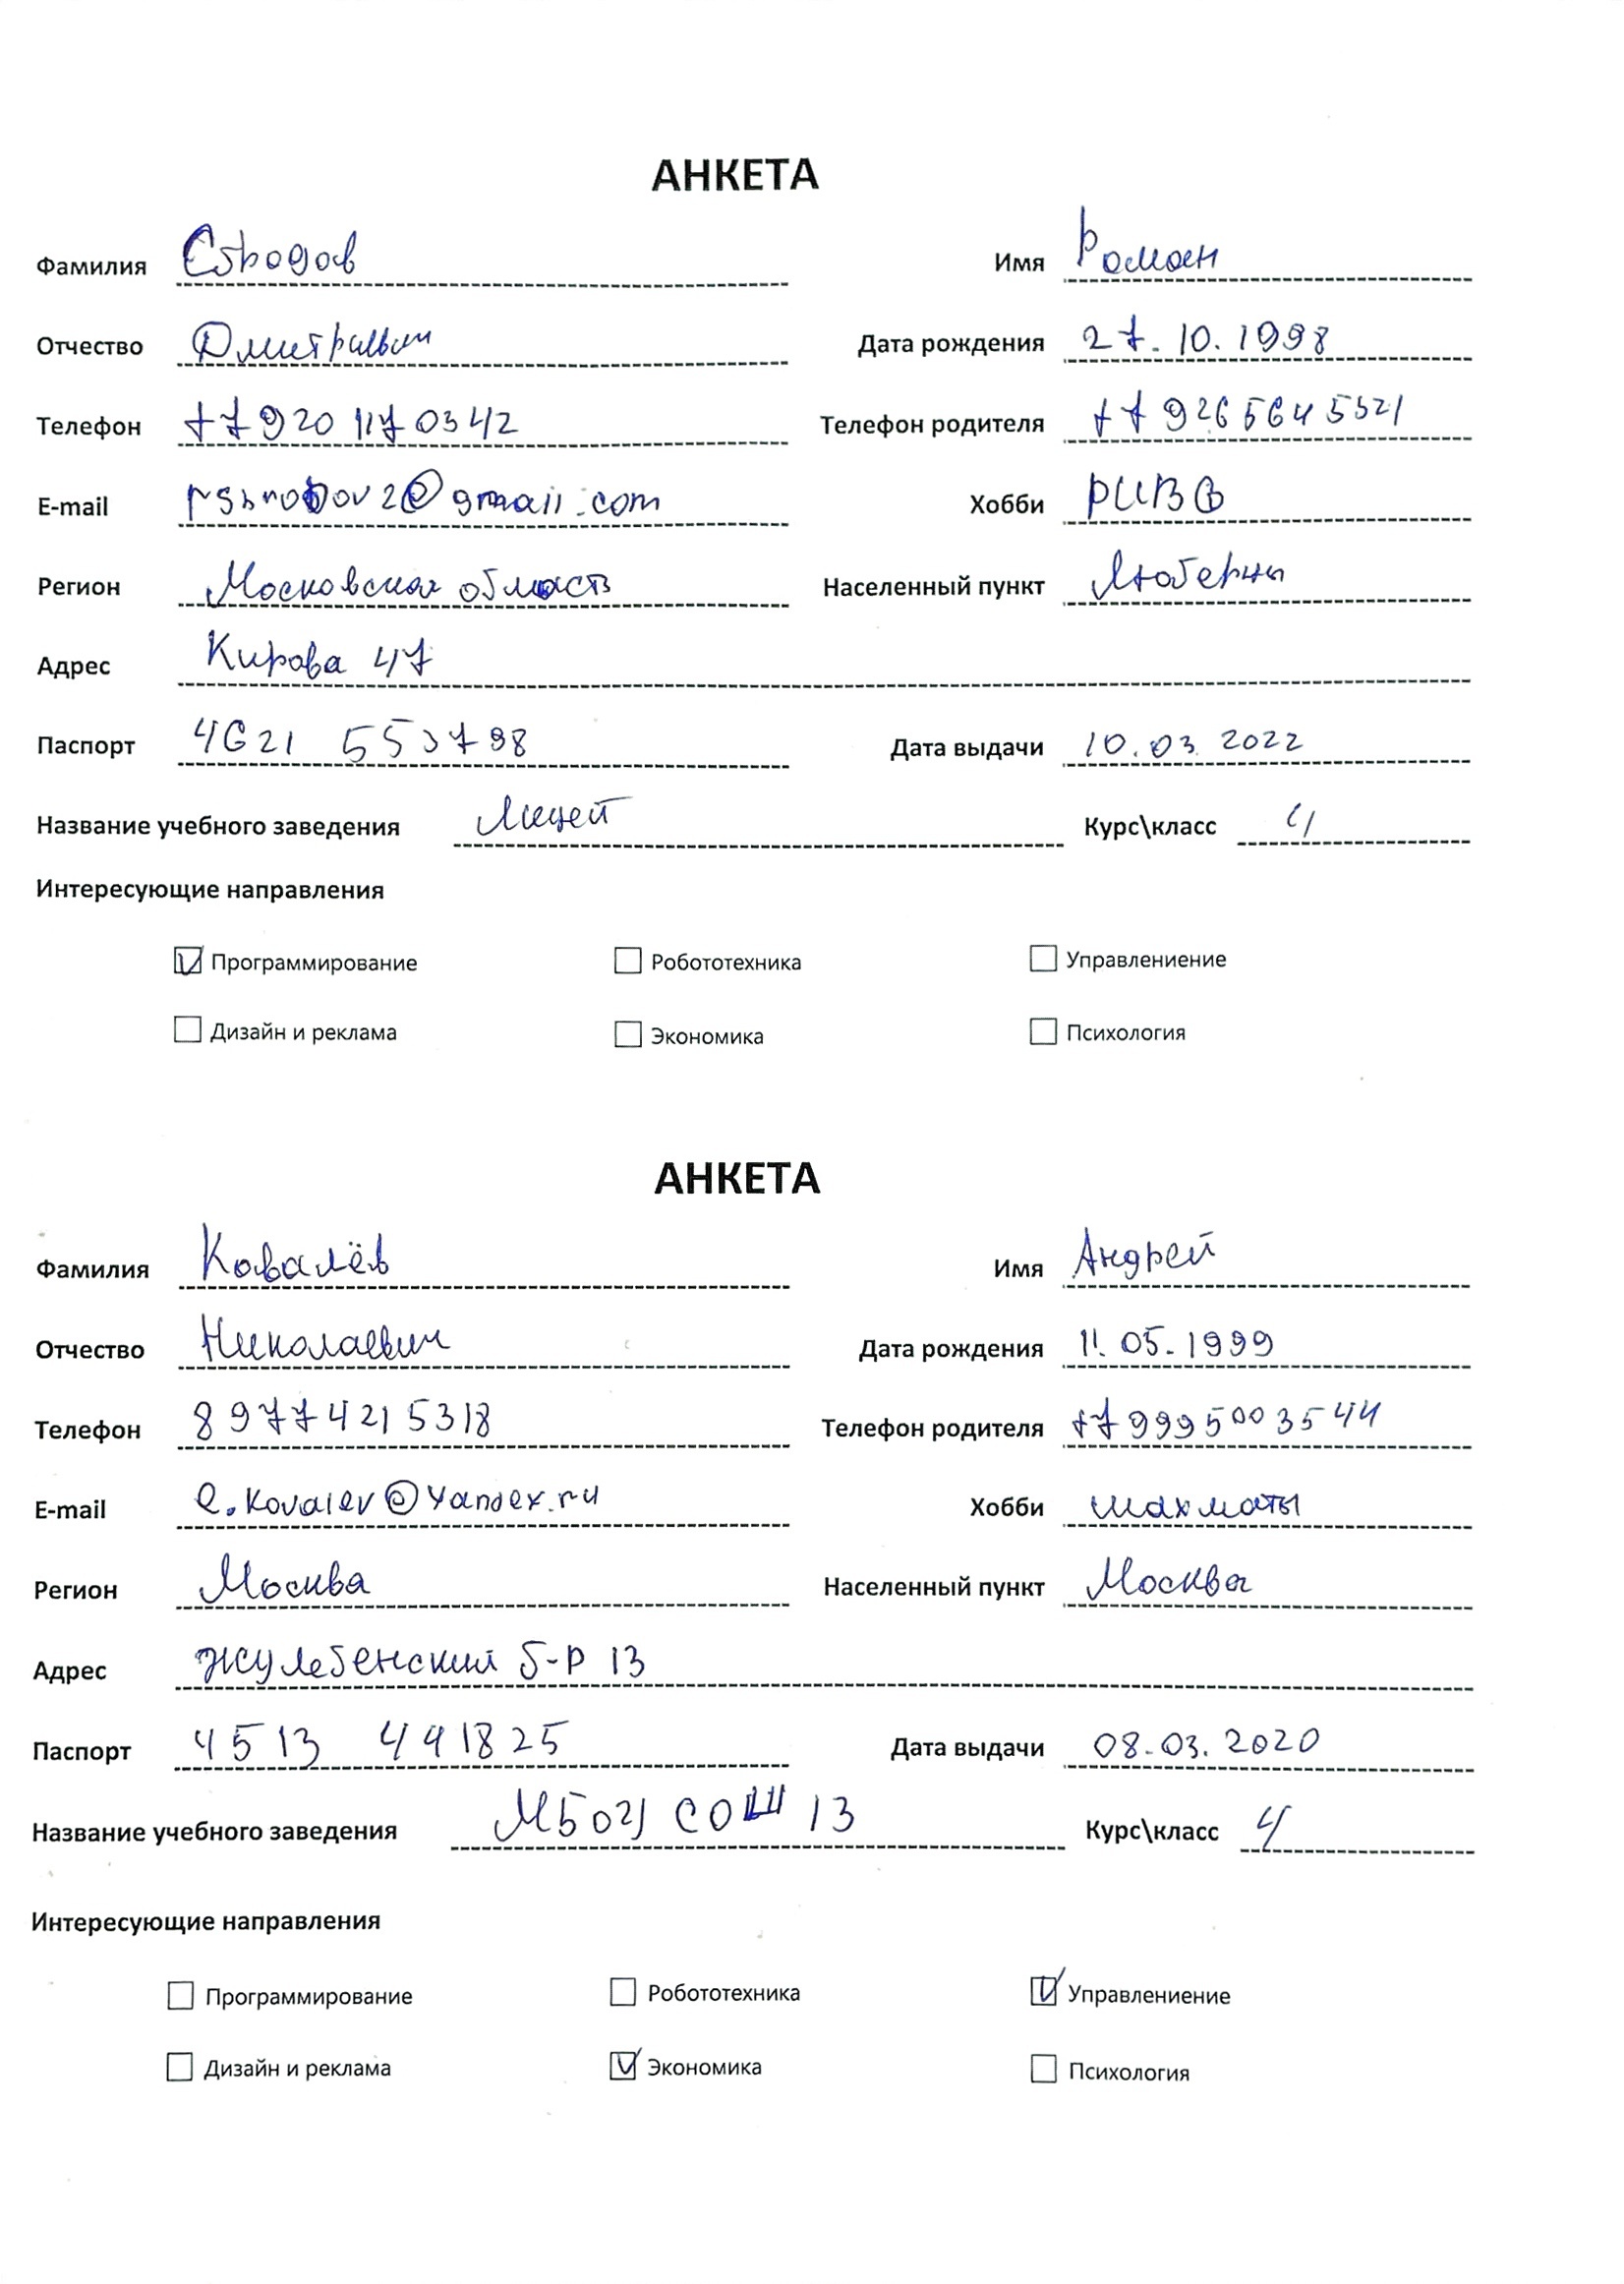 АНКЕТА
Фамилия Имя Роман
Отчество Дмитриевич Дата рождения 27.10.1998
Телефон +7920 117 0342 Телефон родителя +7 926 564 5321
E-mail Хобби РИВВ
Регион Московская область Населенный пункт Люберцы
Адрес Кирова 47
Паспорт 4621 553798 Дата выдачи 10.03.2022
Название учебного заведения Лицей Курс\класс 4
Интересующие направления
Программирование Робототехника Управлениение
Дизайн и реклама Экономика Психология
АНКЕТА
Фамилия Ковалёв Имя Андрей
Отчество Николаевич Дата рождения 11.05.1999
Телефон 89774215318 Телефон родителя +79995003544
E-mail e.kovalev@yandex.ru Хобби шахматы
Регион Москва Населенный пункт Москва
Адрес Жулебенский б-р 13
Паспорт 4513 441825 Дата выдачи 08.03.2020
Название учебного заведения МБОУ СОШ 13 Курс\класс 4
Интересующие направления
Программирование Робототехника Управлениение
Дизайн и реклама Экономика Психология